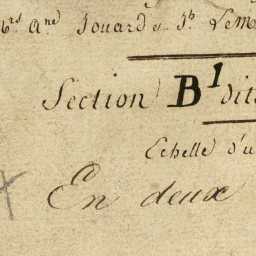 b.rs A.ne Jouard et J.h Lem
Section B1 dit
Echelle d'u
En deux